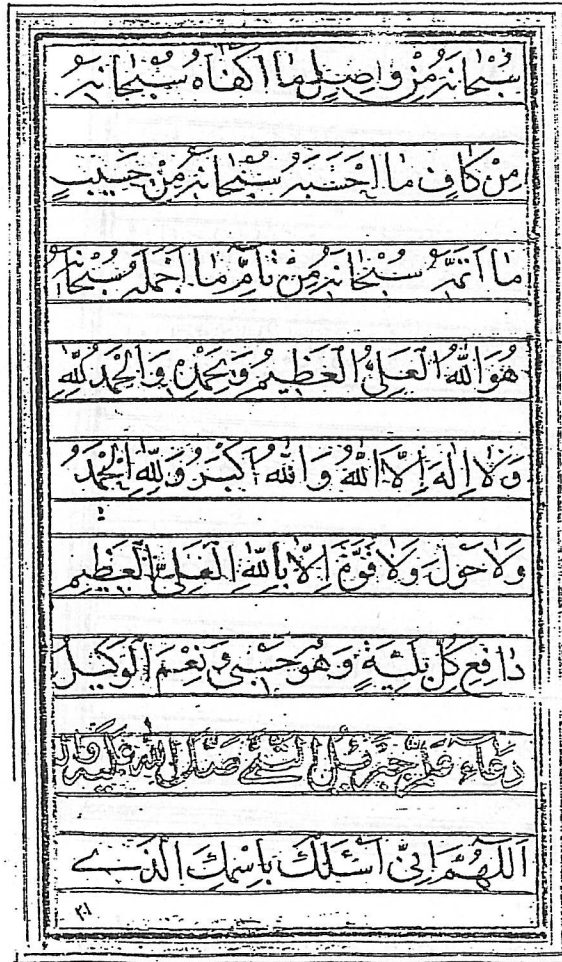 سُبْحَانَهُ مِنْ وَاصِلٍ مَا اَكْفَاهُ سُبْحَانَهُ
مِنْ كَافٍ مَا اَحْسَبَهُ سُبْحَانَهُ مِنْ حَسِيبٍ
مَا اَتَمَّهُ سُبْحَانَهُ مِنْ تَامٍّ مَا اَجْمَلَهُ سُبْحَانَهُ
هُوَ اللهُ الْعَلِيُّ الْعَظِيمُ وَبِحَمْدِهِ وَالْحَمْدُ لِلّٰهِ
وَلَا اِلٰهَ اِلَّا اللهُ وَاللهُ اَكْبَرُ وَلِلّٰهِ الْحَمْدُ
وَلَا حَوْلَ وَلَا قُوَّةَ اِلَّا بِاللهِ الْعَلِيِّ الْعَظِيمِ
دَافِعُ كُلِّ بَلِيَّةٍ وَهُوَ حَسْبِي وَنِعْمَ الْوَكِيلُ
دعاء جبرئيل النبي صلى الله عليه واله
اَللّٰهُمَّ اِنِّي اَسْئَلُكَ بِاسْمِكَ الَّذِي